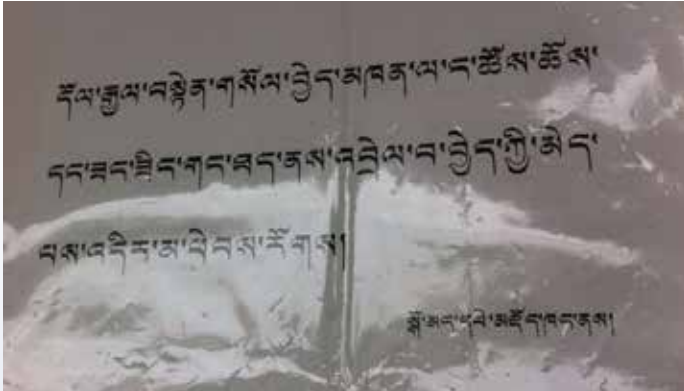 དོལ་རྒྱལ་བསྟེན་གསོལ་བྱེད་མཁན་ལ་ང་ཚོས་ཆོས་
དང་ཟང་ཟིང་གང་ཐད་ནས་འབྲེལ་བ་བྱེད་ཀྱི་མེད་
པས་འདིར་མ་ཕེབས་རོགས།
སྨོ་མང་དཔེ་མཛོད་ཁང་ནས།